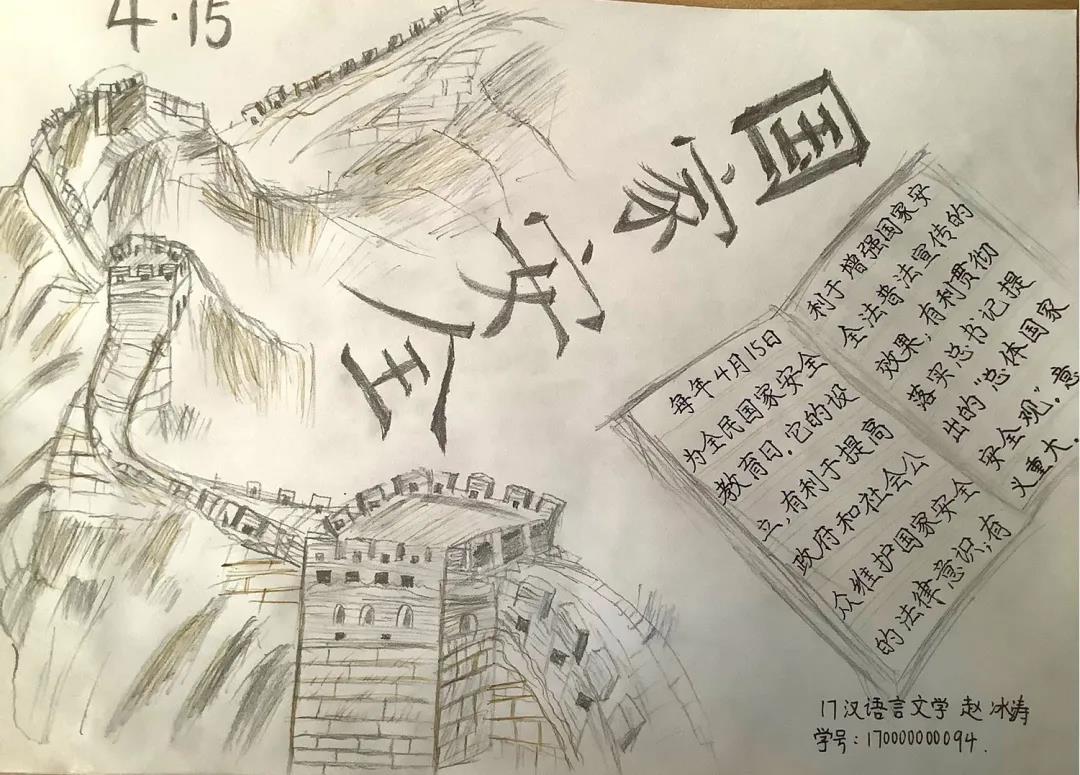 4·15
国家安全
每年4月15日
为全民国家安全
教育日。它的设
立,有利于提高
政府和社会公
众维护国家安全
的法律意识;有
利于增强国家安
全法普法宣传的
效果;有利贯彻
落实总书记提
出的"总体国家
安全观"。意
义重大.
17汉语言文学 赵冰涛
学号:170000000094.